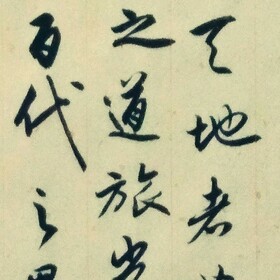 天地者
之道旅
百代之